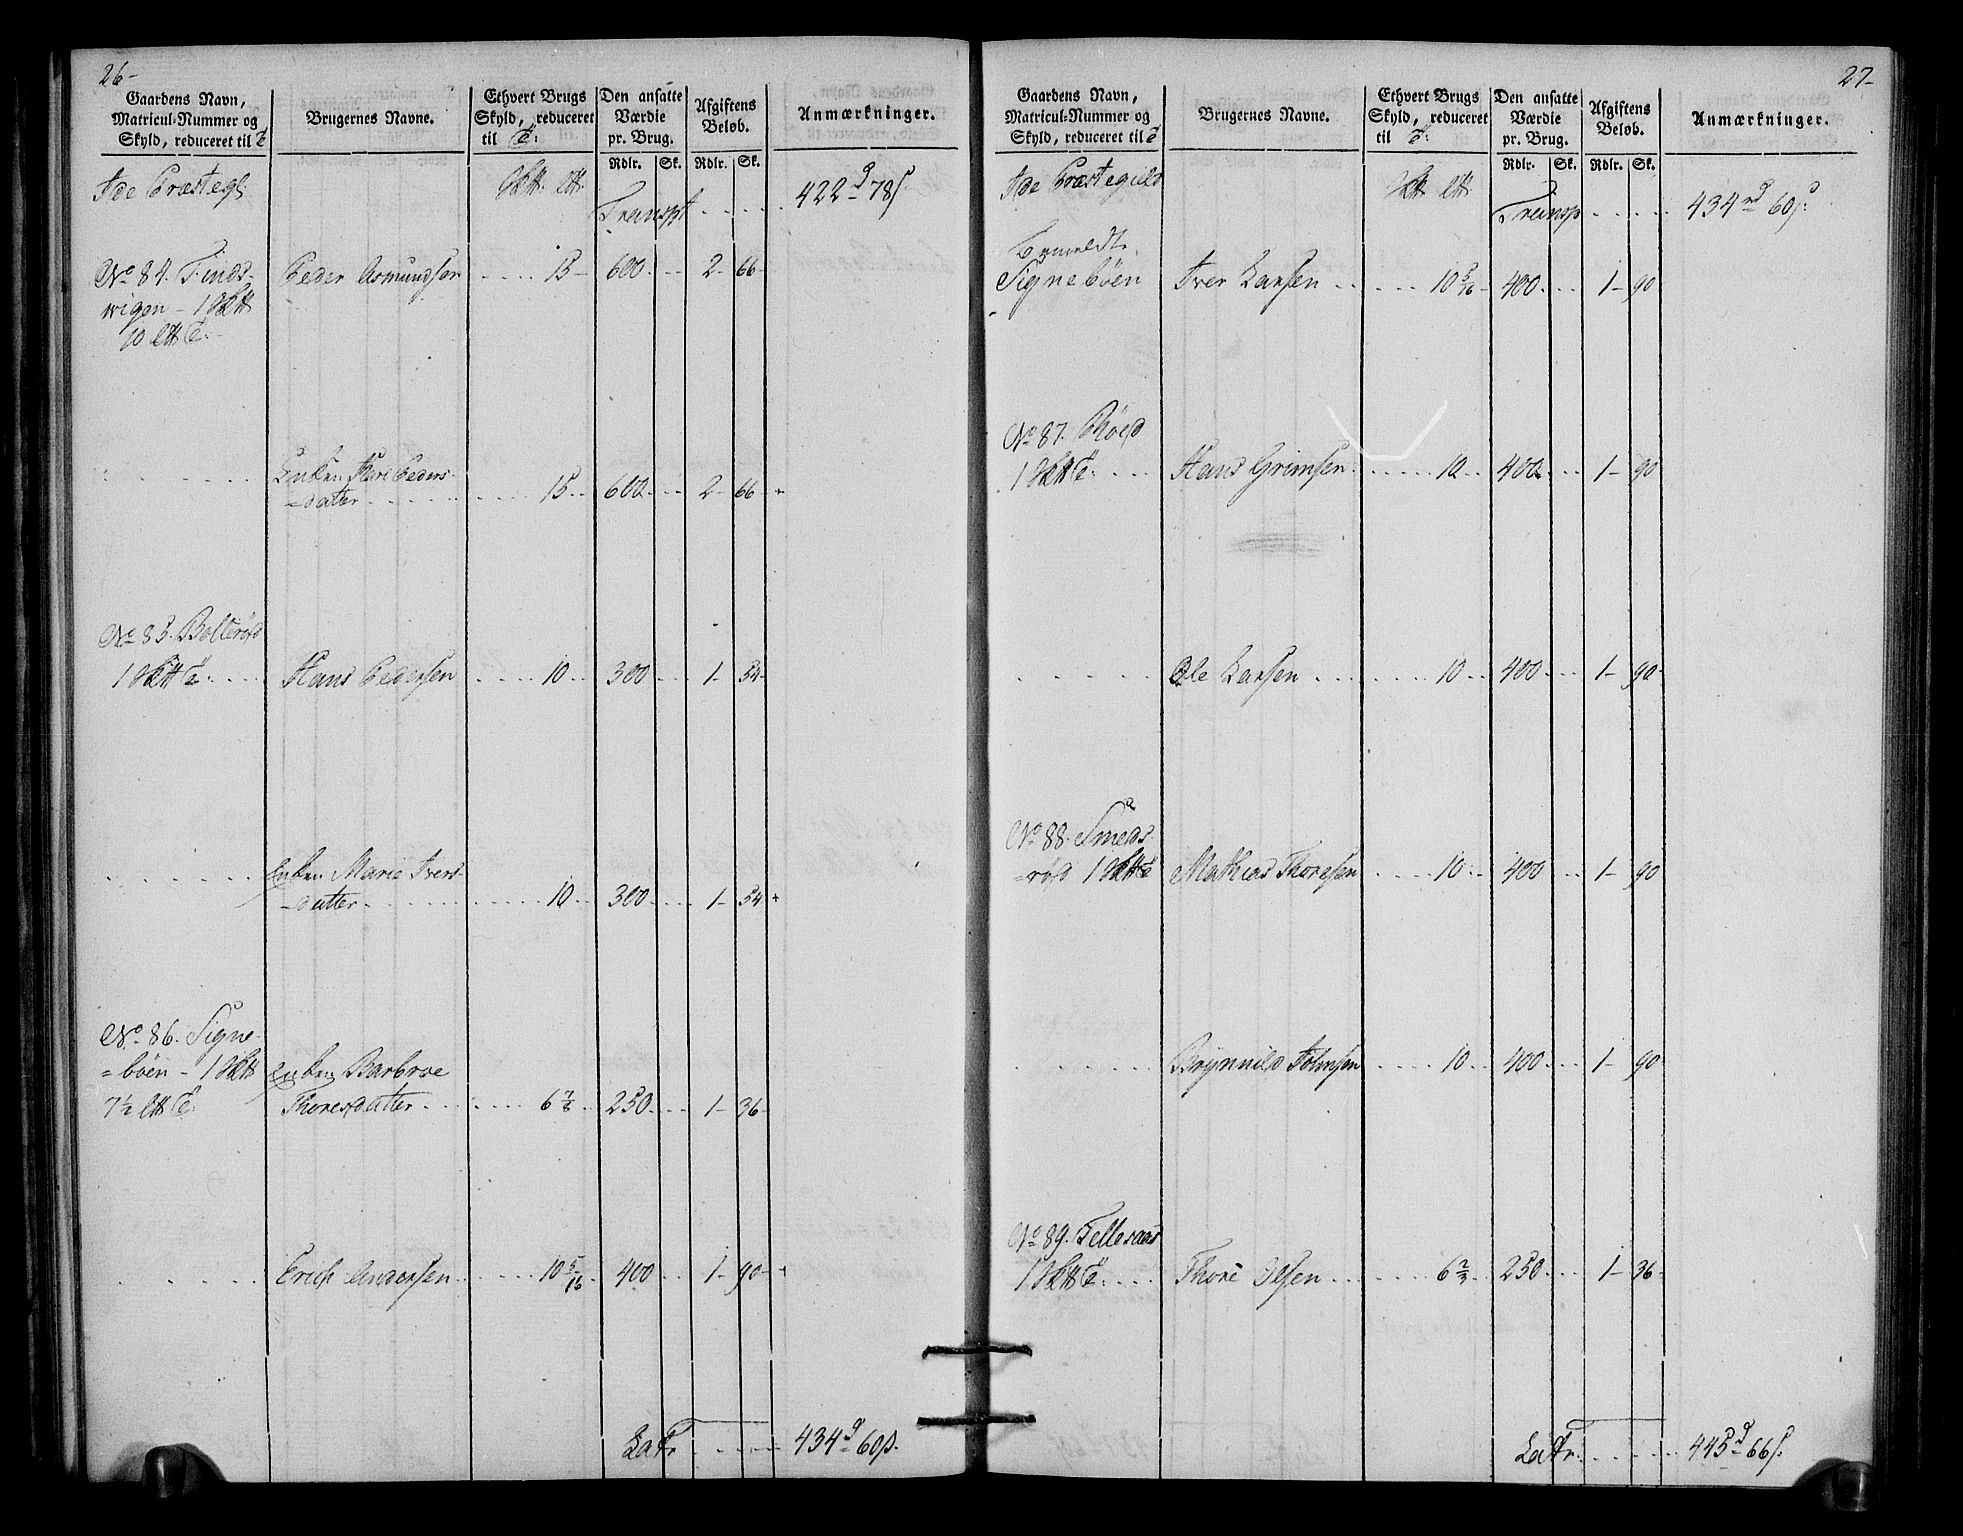 26-
Gaardens Navn,
Matricul-Nummer og
Skyld, reduceret til T
Brugernes Navne.
Ethvert Brugs
Skyld, reduceret
til T:
Den ansatte
Værdie
pr. Brug.
Rdlr. Sk.
Afgiftens
Beløb.
Rdlr. Sk.
Anmærkninger.
Ide Præstegl:
Transpt ..... 422 - 78
No 84. Finds-
wigen - 1
10
Peder Asmundsen .... 15 - 600. .. 2 - 66-
Enken Kari Peders-
-datter ....... 15 .. 600 ... 2 - 66 +
No 85. Bolterød
1
Hans Pedersen .... 10 .. 300 ... 1 - 54-
Enken Marie Ivers-
-datter ........ 10 .. 300 ... 1 - 54 +
No 86. Signe-
=bøen - 1
7½
Enken Barbroe
Thoresdatter ...... 6 7/8 .. 250 ... 1 - 36-
Erich Andersen ..... 10 5/16 .. 400 ... 1 - 90 - +
Latr ..... 434 - 60
27-
Gaardens Navn,
Matricul-Nummer og
Skyld, reduceret til T
Brugernes Navne.
Ethvert Brugs
Skyld, reduceret
til T:
Den ansatte
Værdie
pr. Brug.
Rdlr. Sk.
Afgiftens
Beløb.
Rdlr. Sk.
Anmærkninger.
Ide Præstegield
Transp ..... 434 60
Bemeldte
Signebøen
Iver Larsen ..... 10 5/16 - 400 ... 1 - 90
No 87.
1
Hans Grimsen ...... 10 .. 400 ... 1 - 90
Ole Larsen ...... 10 .. 400 ... 1 - 90-
No 88. Smeds-
=rød 1
Mathias Thoresen .... 10 .. 400 ... 1 - 90
Brynnild Johnsen .... 10 .. 400 ... 1 - 90
No 89. Tellesaas
1
Thore Olsen ...... 6 2/3 .. 250 ... 1 - 36-
Latr ..... 445 - 66